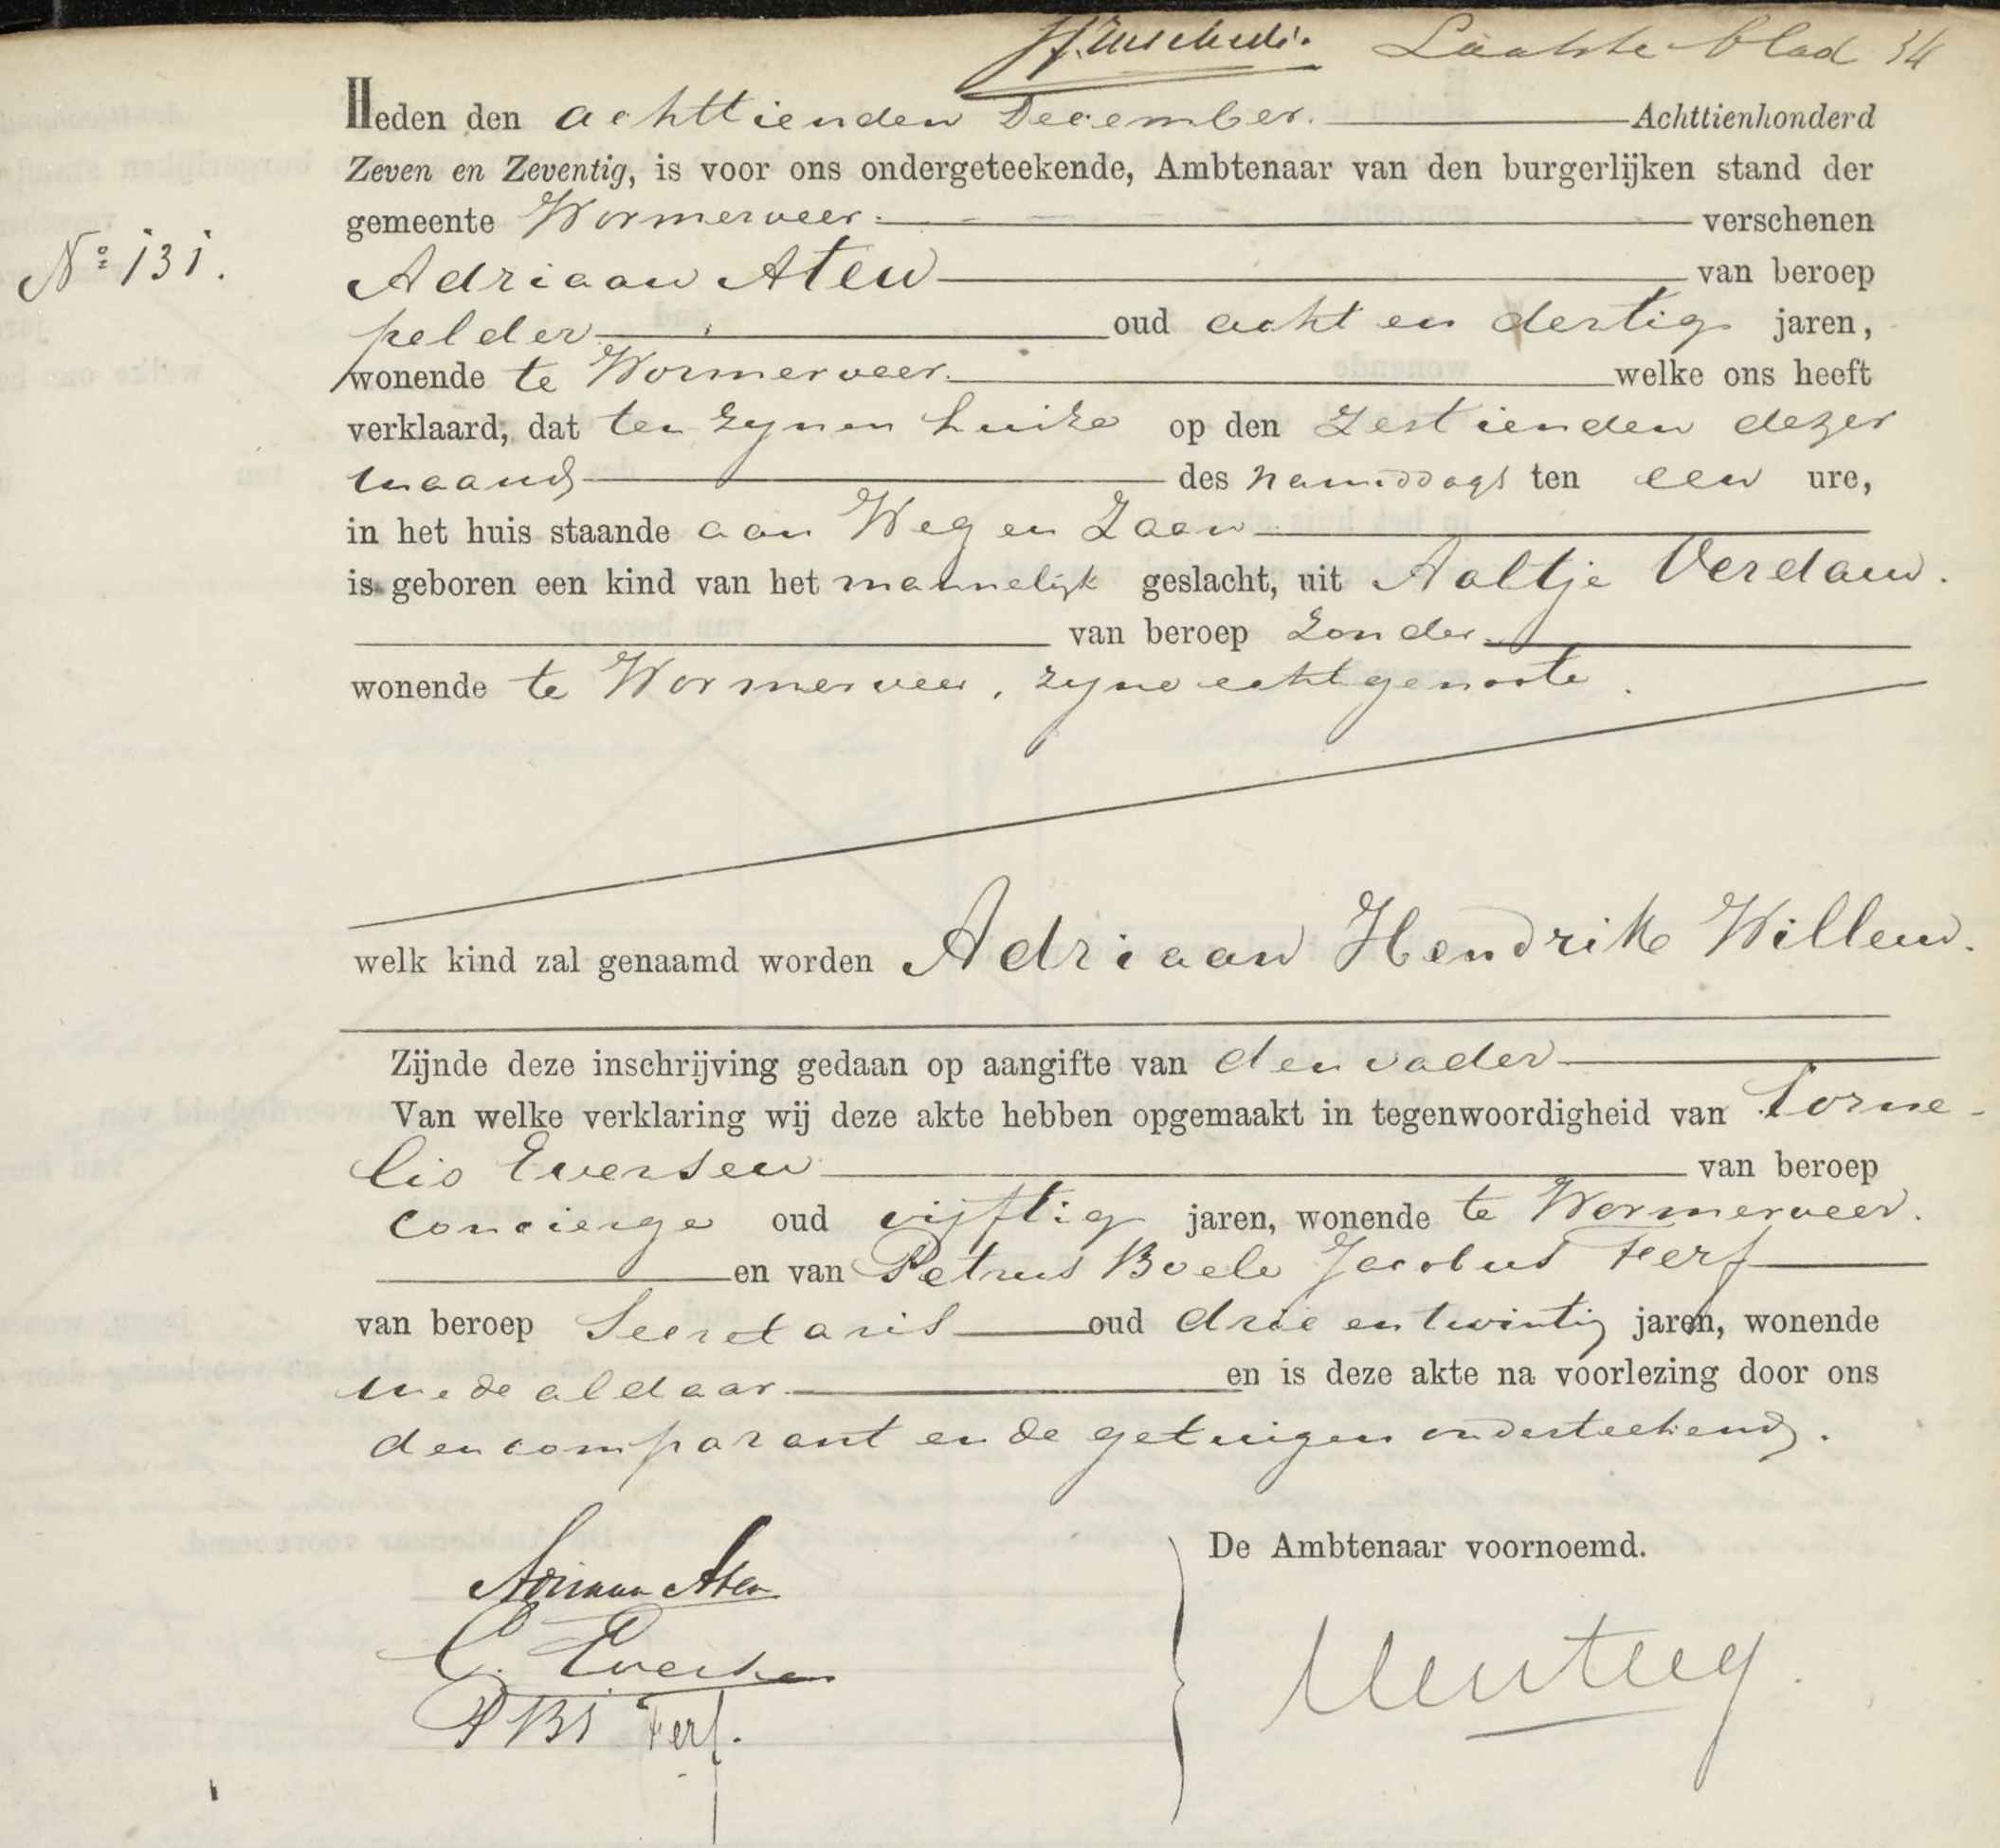 Laatste blad 34
Heden den achttienden December. Achttienhonderd
Zeven en Zeventig, is voor ons ondergeteekende, Ambtenaar van den burgerlijken stand der
gemeente Wormerveer. verschenen
No 131.
Adriaan Aten van beroep
pelder oud acht en dertig jaren,
wonende te Wormerveer. welke ons heeft
verklaard, dat ten zynen huize op den zestienden dezer
maand des namiddags ten een ure,
in het huis staande aan Weg en Zaan
is geboren een kind van het mannelijk geslacht, uit Aaltje Verdam.
van beroep zonder
wonende te Wormerveer, zyne echtgenoote.
welk kind zal genaamd worden Adriaan Hendrik Willem.
Zijnde deze inschrijving gedaan op aangifte van den vader
Van welke verklaring wij deze akte hebben opgemaakt in tegenwoordigheid van Corne-
lis Eversen van beroep
concierge oud vijftig jaren, wonende te Wormerveer.
en van Petrus Boele Jacobus Ferf
van beroep Secretaris oud drie en twintig jaren, wonende
mede aldaar. en is deze akte na voorlezing door ons
den comparant en de getuigen onderteekend.
De Ambtenaar voornoemd.
Adriaan Aten
C. Eversen
PBJ Ferf.